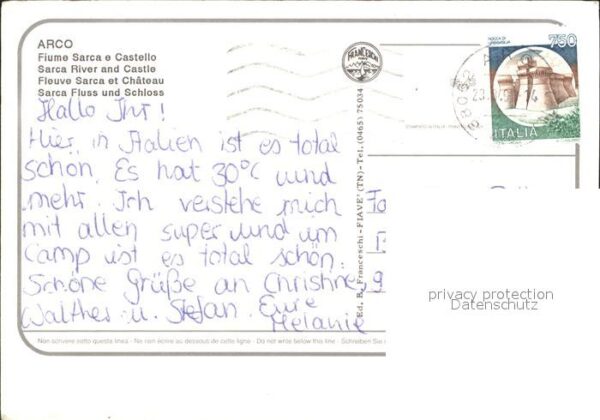 ARCO
Fiume Sarca e Castello
Sarca River and Castle
Fleuve Sarca et Château
Sarca Fluss und Schloss
Hallo Ihr!
Hier in Italien ist es total
schön. Es hat 30°C uund
mehr. Ich verstehe mich
mit allen super uund im
Camp ist es total schön.
Schöne Grüße an Christine,
Walther u. Stefan. Eure
Melanie
Non scrivere sotto questa linea - Ne rien écrire au dessous de cette ligne - Do not write below this line - Schreiben Sie
FRANCESCHI
Ed. B. Franceschi - FIAVE' (TN) - Tel. (0465) 75034
750
ITALIA
38062
privacy protection
Datenschutz